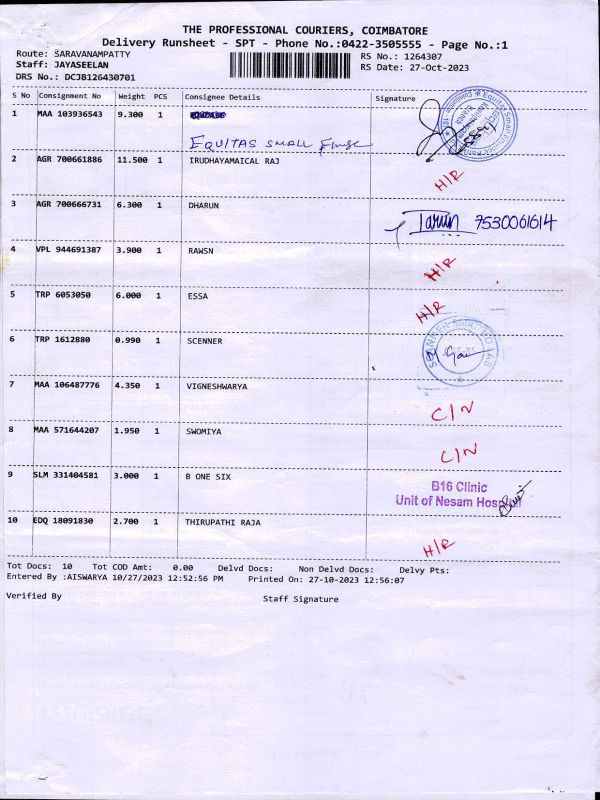 THE PROFESSIONAL COURIERS, COIMBATORE
Delivery Runsheet - SPT - Phone No.:0422-3505555 - Page No.:1
Route: SARAVANAMPATTY
Staff: JAYASEELAN
DRS No.: DCJB126430701
RS No.: 1264307
RS Date: 27-Oct-2023
S No Consignment No Weight PCS Consignee Details Signature
1 MAA 103936543 9.300 1
EQUITAS SMALL
2 AGR 700661886 11.500 1 IRUDHAYAMAICAL RAJ
H/R
3 AGR 700666731 6.300 1 DHARUN
Tarun 7530061614
4 VPL 944691387 3.900 1 RAWSN
H/R
5 TRP 6053050 6.000 1 ESSA
H/R
6 TRP 1612880 0.990 1 SCENNER
7 MAA 106487776 4.350 1 VIGNESHWARYA
C/N
8 MAA 571644207 1.950 1 SWOMIYA
C/N
9 SLM 331404581 3.000 1 B ONE SIX
B16 Clinic
Unit of Nesam Hospital
10 EDQ 18091830 2.700 1 THIRUPATHI RAJA
H/R
Tot Docs: 10 Tot COD Amt: 0.00 Delvd Docs: Non Delvd Docs: Delvy Pts:
Entered By :AISWARYA 10/27/2023 12:52:56 PM Printed On: 27-10-2023 12:56:07
Verified By Staff Signature